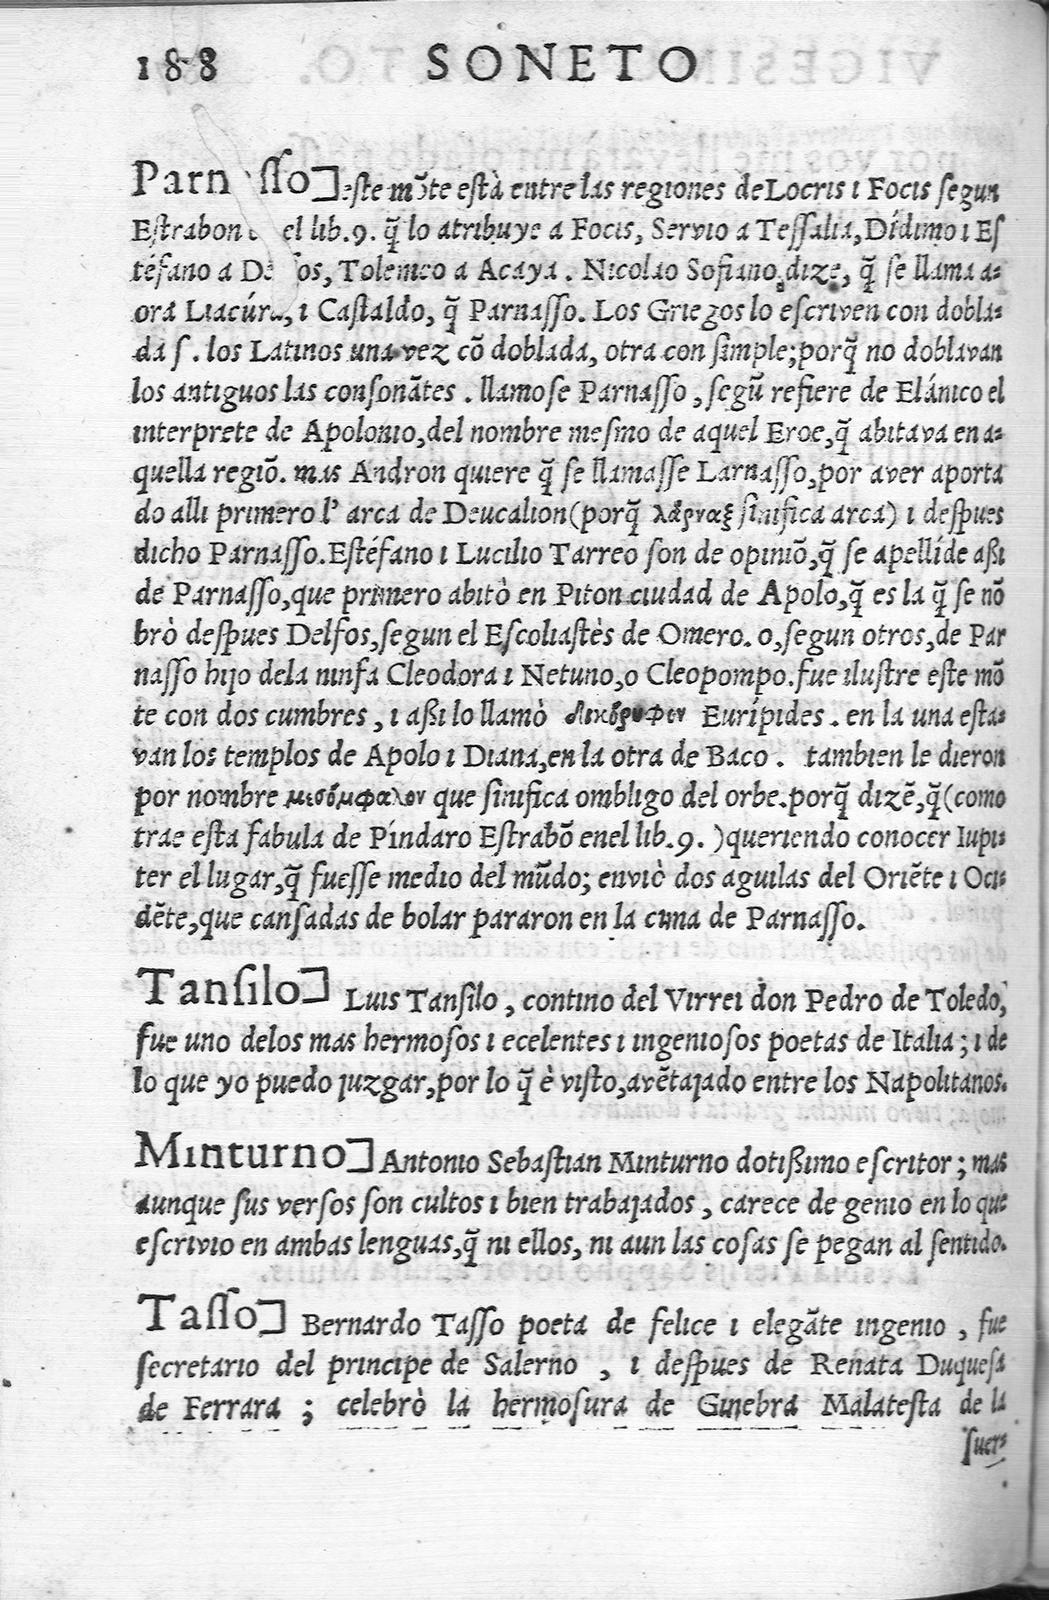 188 SONETO
Parnaſſo] eſte mõte eſtà entre las regiones de Locris i Focis ſegun
Eſtrabon en el lib.9. q̃ lo atribuye a Focis, Servio a Teſſalia, Dídimo i Eſ
téfano a Delfos, Tolemeo a Acaya. Nicolao Sofiano dize, q̃ ſe llama a-
ora Liacúra, i Caſtaldo, q̃ Parnaſſo. Los Griegos lo eſcriven con dobla-
da ſ. los Latinos una vez cõ doblada, otra con ſimple; porq̃ no doblavan
los antiguos las conſonãtes. llamoſe Parnaſſo, ſegũ refiere de Elánico el
interprete de Apolonio, del nombre meſmo de aquel Eroe, q̃ abitava en a-
quella regiõ. mas Andron quiere q̃ ſe llamaſſe Larnaſſo, por aver aporta
do alli primero l' arca de Deucalion (porq̃ λάρναξ ſinifica arca) i deſpues
dicho Parnaſſo. Eſtéfano i Lucilio Tarreo ſon de opiniõ, q̃ ſe apellíde aßi
de Parnaſſo, que primero abitò en Piton ciudad de Apolo, q̃ es la q̃ ſe nõ
brò deſpues Delfos, ſegun el Eſcoliaſtès de Omero. o, ſegun otros, de Par
naſſo hijo dela ninfa Cleodora i Netuno, o Cleopompo. fue iluſtre eſte mõ
te con dos cumbres, i aßi lo llamò δικόρυφον Eurípides. en la una eſta-
van los templos de Apolo i Diana, en la otra de Baco. tambien le dieron
por nombre μεσόμφαλον que ſinifica ombligo del orbe. porq̃ dizẽ, q̃ (como
trae eſta fabula de Píndaro Eſtrabõ enel lib.9.) queriendo conocer Iupi-
ter el lugar, q̃ fueſſe medio del mũdo; enviò dos aguilas del Oriẽte i Oci-
dẽte, que canſadas de bolar pararon en la cima de Parnaſſo.
Tanſilo] Luis Tanſilo, contino del Virrei don Pedro de Toledo,
fue uno delos mas hermoſos i ecelentes i ingenioſos poetas de Italia; i de
lo que yo puedo juzgar, por lo q̃ è viſto, avẽtajado entre los Napolitanos.
Minturno] Antonio Sebaſtian Minturno dotißimo eſcritor; mas
aunque ſus verſos ſon cultos i bien trabajados, carece de genio en lo que
eſcrivio en ambas lenguas, q̃ ni ellos, ni aun las coſas ſe pegan al ſentido.
Taſſo] Bernardo Taſſo poeta de felice i elegãte ingenio, fue
ſecretario del principe de Salerno, i deſpues de Renata Duqueſa
de Ferrara; celebrò la hermoſura de Ginebra Malateſta de la
ſuer-